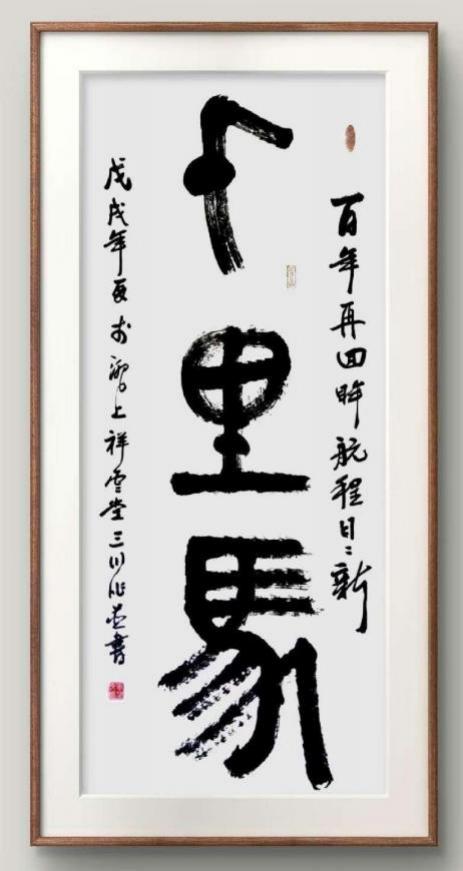 百年再回眸航程日〻新
千里馬
戊戌年夏於上祥雲堂三川作並書